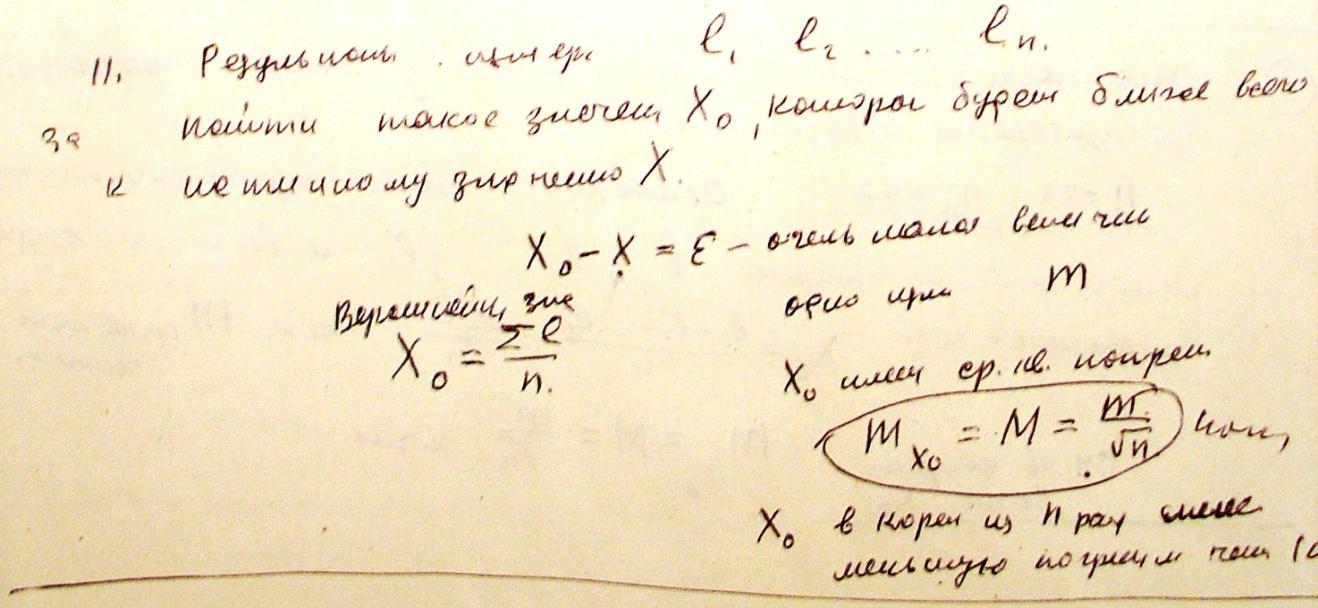 II. Результаты измер. l₁ l₂ .... lₙ.
за найти такое значен X₀, которое будет ближе всего
к истинному значению X.
X₀ - X = ε - очень малая величин
Вероятнейш, знач
одно изм m
X₀ = Σl / n.
X₀ имеет ср. кв. погреш
m_X₀ = M = m / √n
X₀ в корен из n раз
меньшую погрешн чем